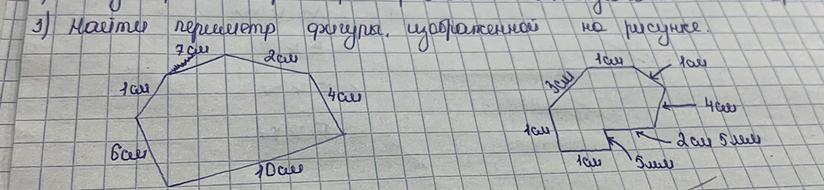 3) Найти периметр фигуры, изображенной на рисунке.
7см
2см
1см
4см
6см
10см
1см
1см
3см
4см
1см
2см 5мм
1см
5мм